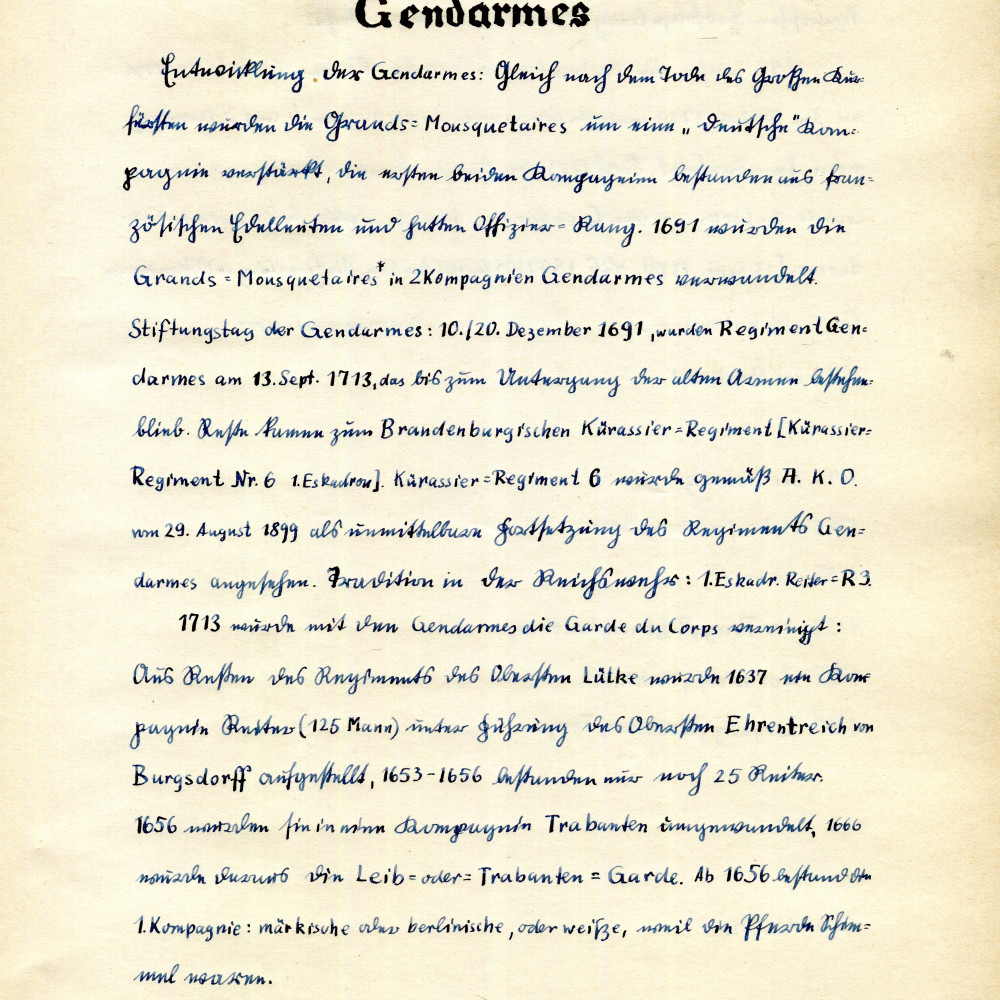 Gendarmes
Entwicklung der Gendarmes: Gleich nach dem Tode des Großen Kur-
fürsten wurden die Grands=Mousquetaires um eine „Deutsche" Kom=
pagnie verstärkt, die ersten beiden Kompagnien bestanden aus fran=
zösischen Edelleuten und hatten Offizier=Rang. 1691 wurden die
Grands=Mousquetaires* in 2 Kompagnien Gendarmes verwandelt.
Stiftungstag der Gendarmes: 10./20. Dezember 1691, wurden Regiment Gen=
darmes am 13. Sept. 1713, das bis zum Untergang der alten Armee bestehen=
blieb. Reste kamen zum Brandenburgischen Kürassier=Regiment [Kürassier=
Regiment Nr. 6 1. Eskadron]. Kürassier=Regiment 6 wurde gemäß A. K. O.
vom 29. August 1899 als unmittelbare Fortsetzung des Regiments Gen=
darmes angesehen. Tradition in der Reichswehr: 1. Eskadr. Reiter=R 3.
1713 wurde mit den Gendarmes die Garde du Corps vereinigt:
Aus Resten des Regiments des Obersten Lütke wurde 1637 ein Kom=
pagnie Reiter (125 Mann) unter Führung des Obersten Ehrentreich von
Burgsdorff aufgestellt, 1653-1656 bestanden nur noch 25 Reiter.
1656 wurden sie in eine Kompagnie Trabanten umgewandelt, 1666
wurde daraus die Leib=oder=Trabanten=Garde. Ab 1656 bestand die
1. Kompagnie: märkische oder berlinische, oder weiße, weil die Pferde Schim=
mel waren.